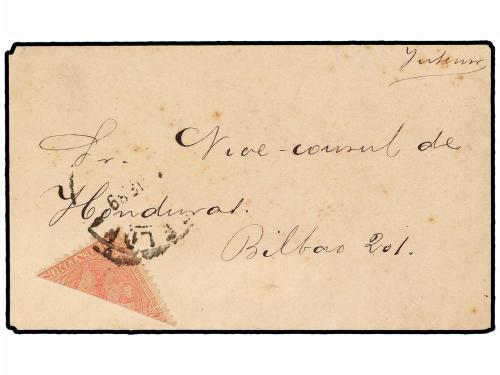 Interior
Sr. Vice-consul de
Honduras.
Bilbao 201.